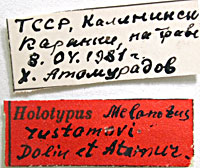 ТССР, Калининск
Каринки, на траве
8.ОV.1981г.
Х. Атамурадов
Holotypus Melanotus
rustamovi
Dolin et Atamur